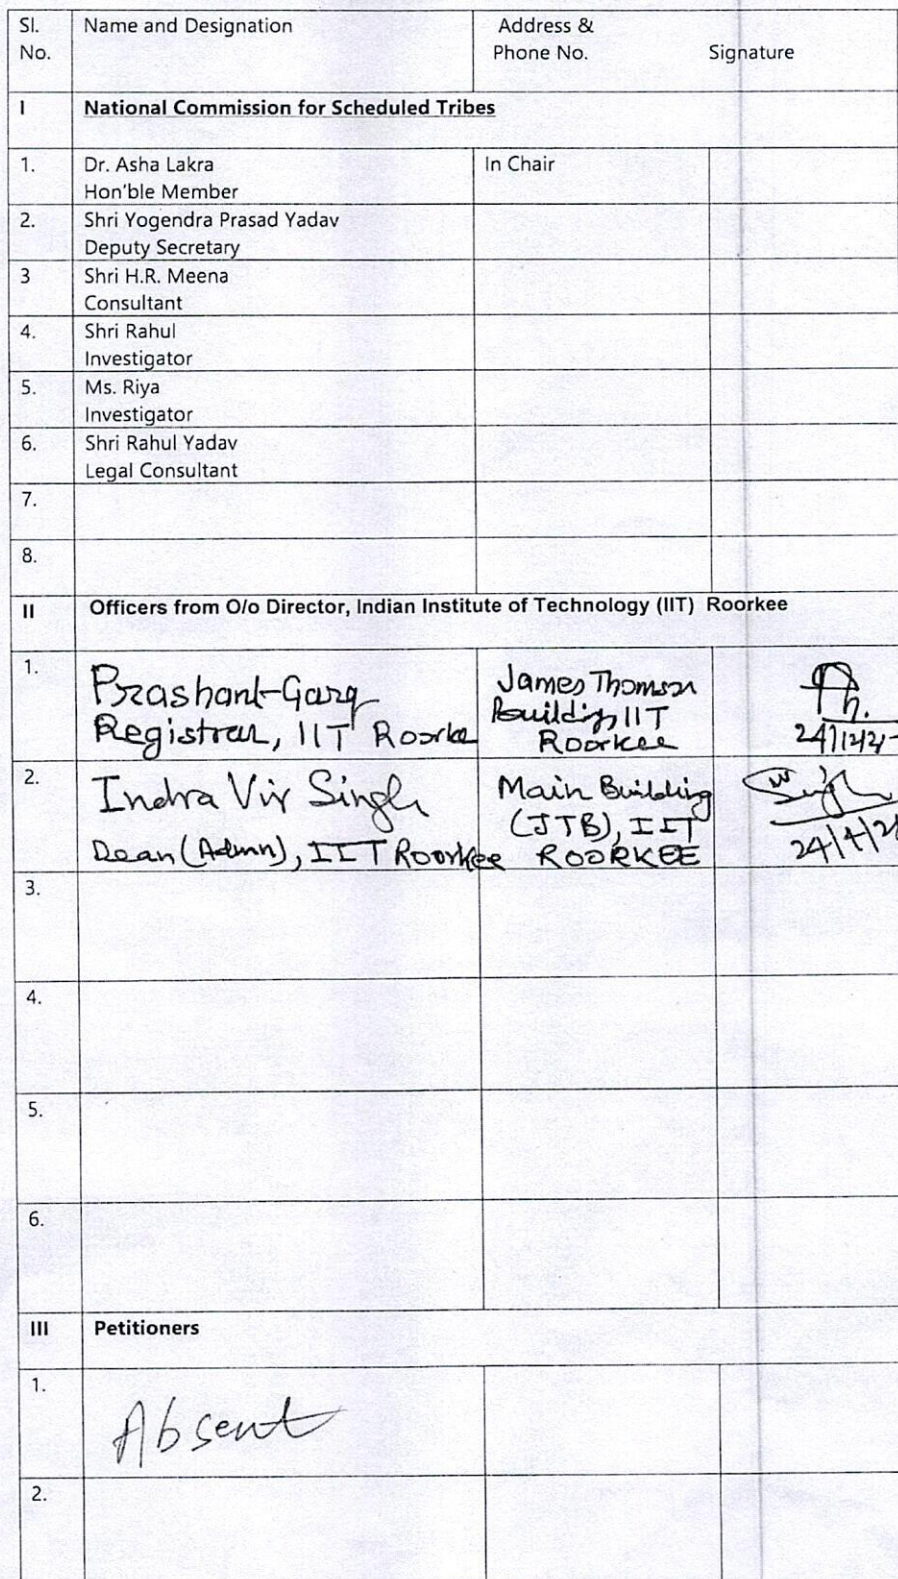 Sl. Name and Designation Address &
No. Phone No. Signature
I National Commission for Scheduled Tribes
1. Dr. Asha Lakra In Chair
Hon'ble Member
2. Shri Yogendra Prasad Yadav
Deputy Secretary
3 Shri H.R. Meena
Consultant
4. Shri Rahul
Investigator
5. Ms. Riya
Investigator
6. Shri Rahul Yadav
Legal Consultant
7.
8.
II Officers from O/o Director, Indian Institute of Technology (IIT) Roorkee
1. Prashant Garg James Thomson
Registrar, IIT Building, IIT
Roorkee
2. Indra Vir Singh Main Building
(JTB), IIT
Dean (Admn), IIT Roorkee ROORKEE
3.
4.
5.
6.
III Petitioners
1.
Absent
2.